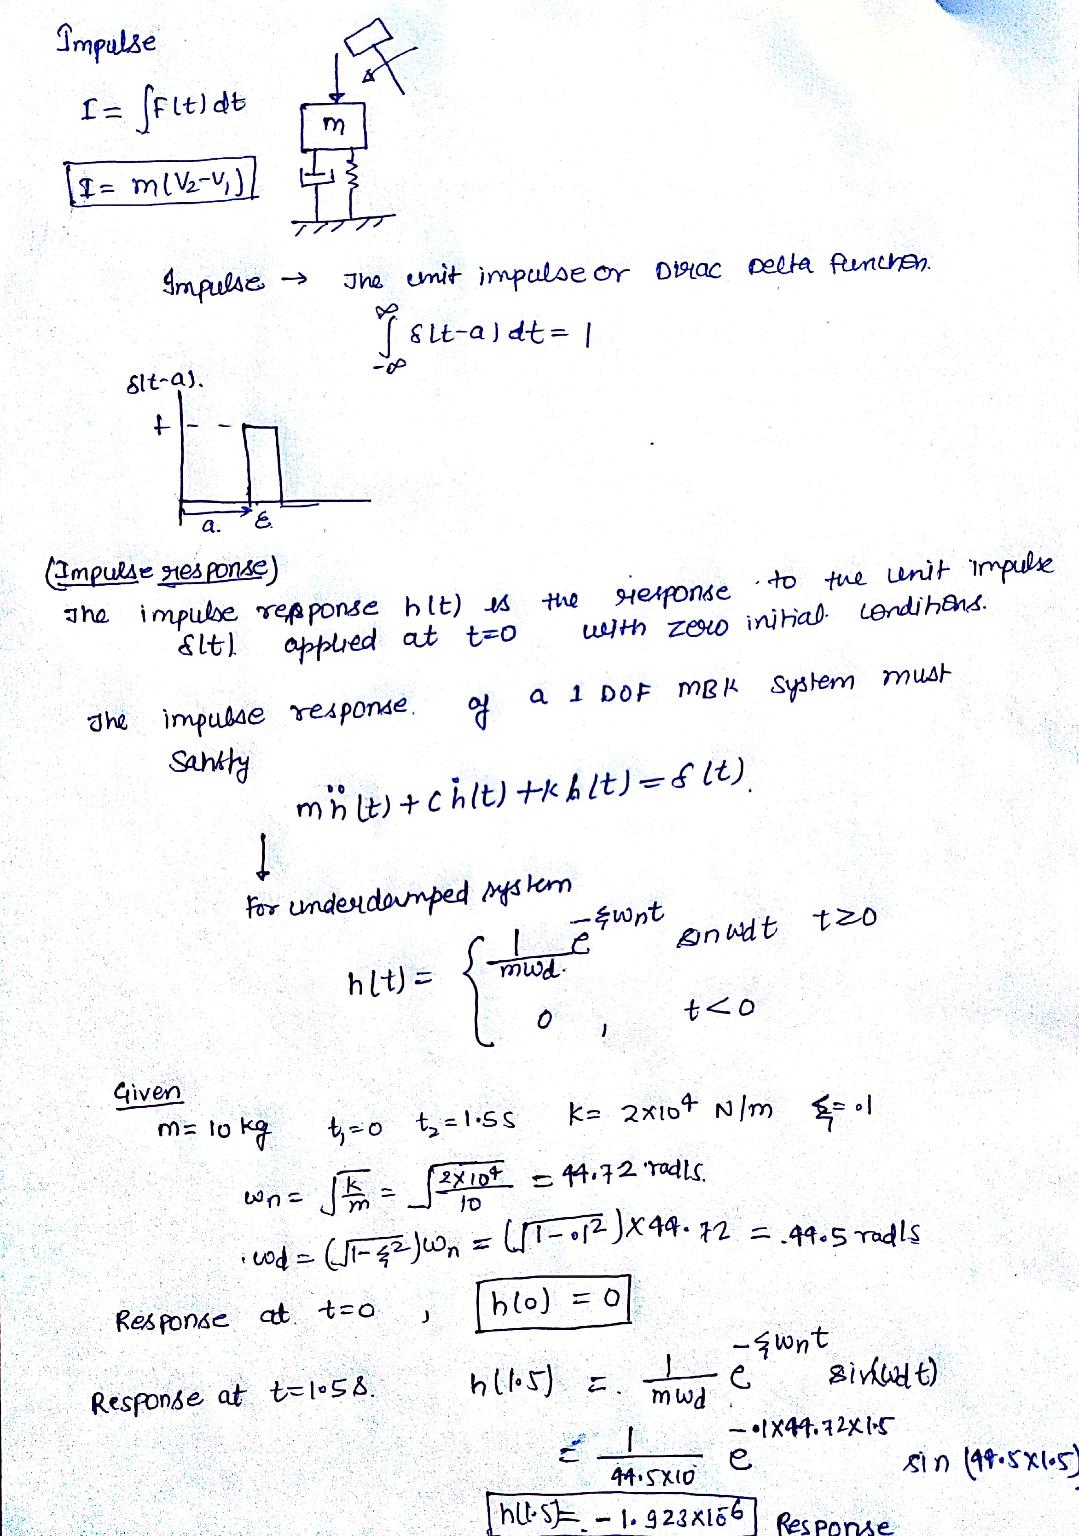 Impulse
I = ∫F(t) dt
m
I = m(V₂-V₁)
Impulse → The unit impulse or Dirac Delta function.
∫_{-∞}^{∞} δ(t-a) dt = 1
δ(t-a).
a. ε.
(Impulse response)
The impulse response h(t) is the response to the unit impulse
δ(t) applied at t=0 with zero initial conditions.
The impulse response of a 1 DOF MBK system must
Satisfy
mḧ(t) + cḣ(t) + kh(t) = δ(t).
↓
For underdamped system
h(t) = { 1/(mωd) e^{-ξωnt} sinωdt t≥0
0 , t<0
Given
m= 10 kg t₁=0 t₂=1.5s K= 2×10⁴ N/m ξ=.1
ωn = √(k/m) = √(2×10⁴/10) = 44.72 rad/s.
ωd = (√1-ξ²)ωn = (√1-.1²)×44.72 = 44.5 rad/s
Response at t=0 , h(0) = 0
Response at t=1.5s. h(1.5) = 1/(mωd) e^{-ξωnt} sin(ωdt)
= 1/(44.5×10) e^{-.1×44.72×1.5} sin(44.5×1.5)
h(1.5)= -1.923×10⁻⁶ Response